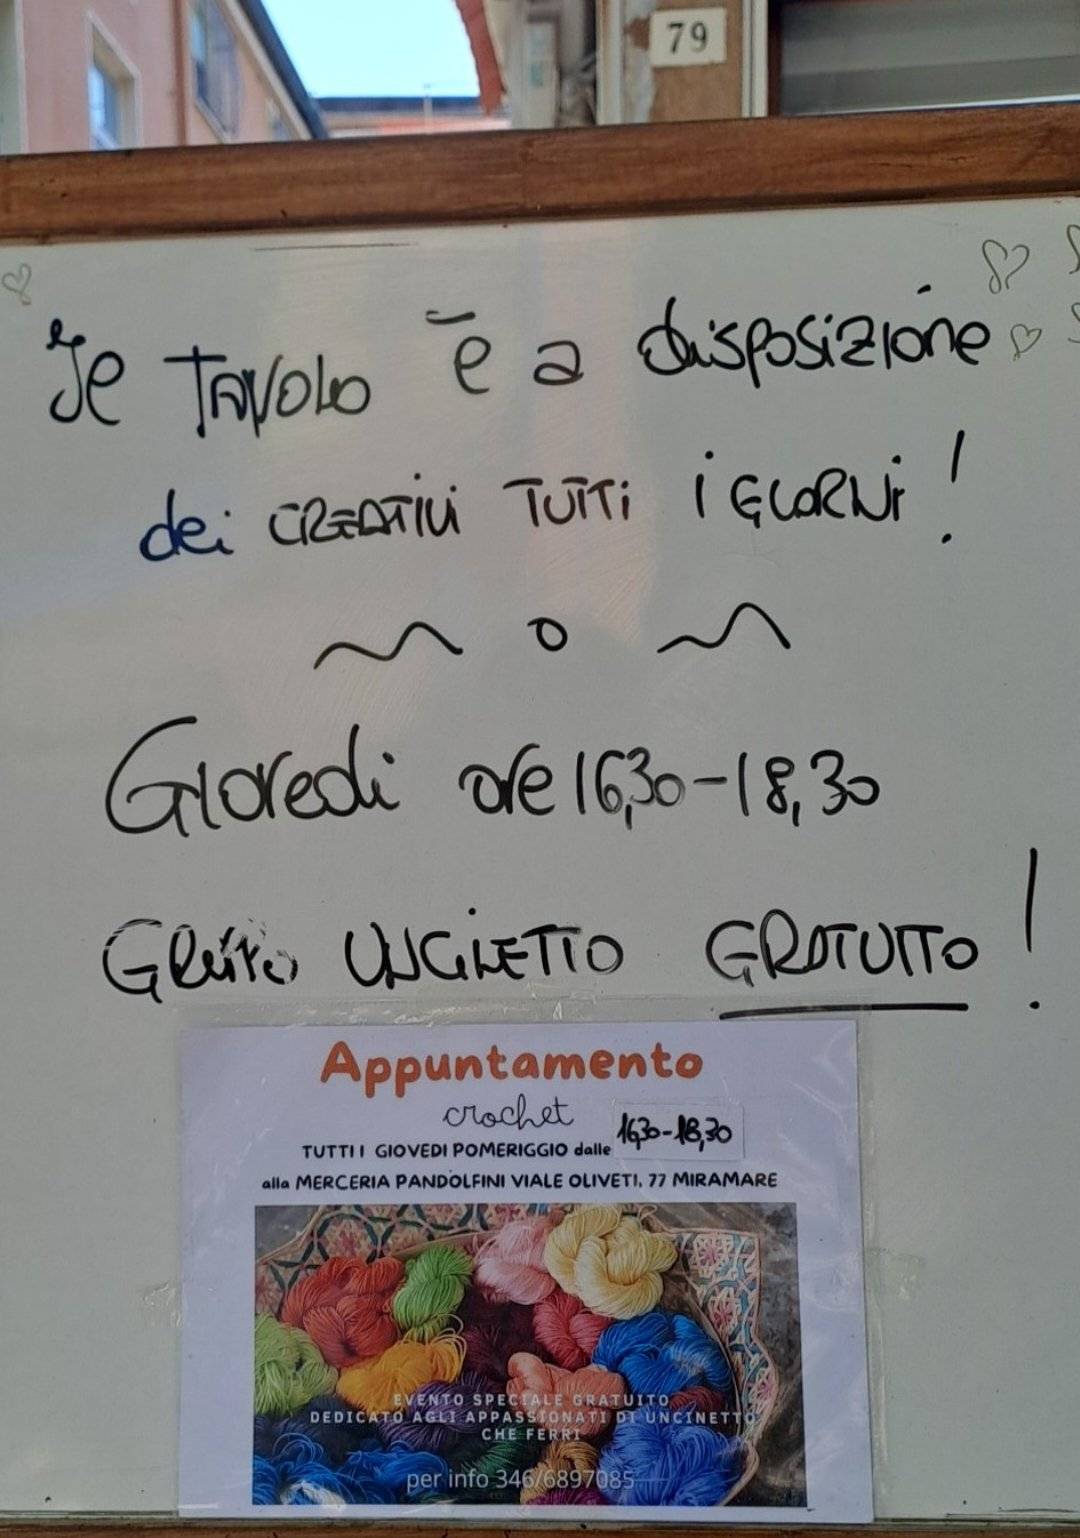 79
Il TAVOLO è a disposizione
dei CREATIVI TUTTI i GIORNI!
o
Giovedi ore 16,30-18,30
GRUPPO UNCINETTO GRATUITO!
Appuntamento
crochet
TUTTI I GIOVEDI POMERIGGIO dalle 16,30-18,30
alla MERCERIA PANDOLFINI VIALE OLIVETI, 77 MIRAMARE
EVENTO SPECIALE GRATUITO
DEDICATO AGLI APPASSIONATI DI UNCINETTO
CHE FERRI
per info 346/6897085